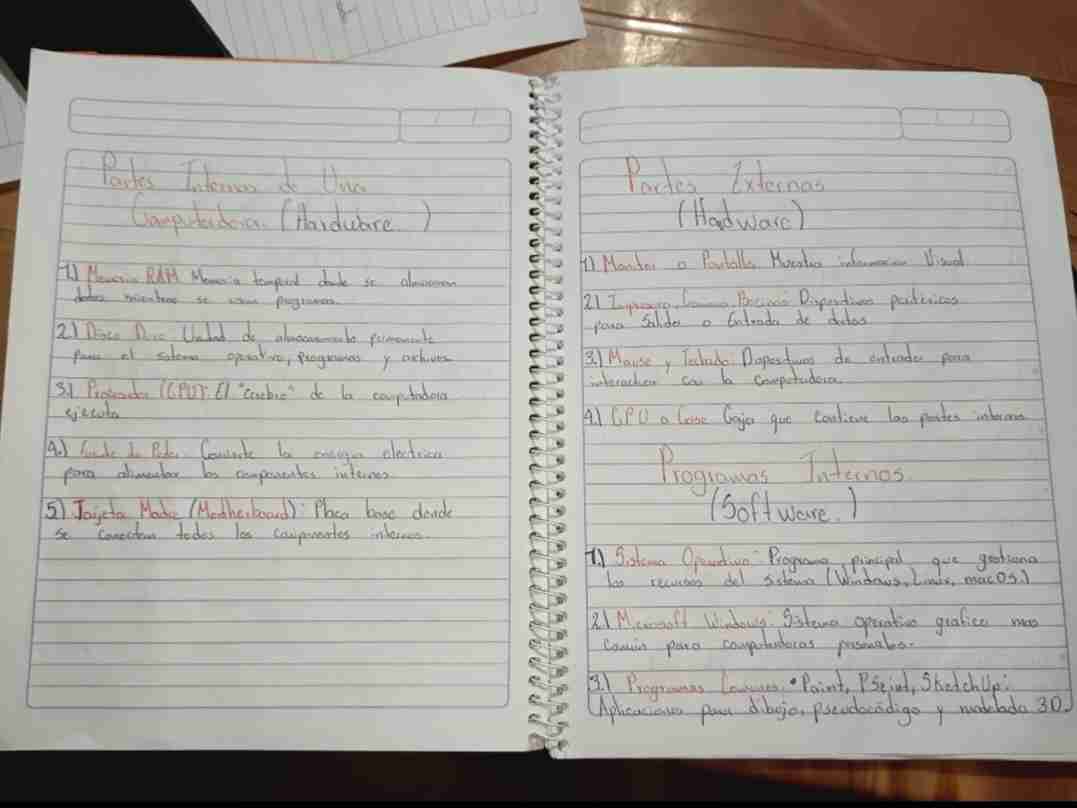 Partes Internas de Una
Computadora. (Hardware.)
1.) Memoria RAM Memoria temporal donde se almacenan
datos mientras se usan programas.
2.) Disco Duro Unidad de almacenamiento permanente
para el sistema operativo, programas y archivos
3.) Procesador (CPU): El "cerebro" de la computadora
ejecuta
4.) Fuente de Poder Convierte la energia electrica
para alimentar los componentes internos.
5) Tarjeta Madre (Motherboard): Placa base donde
se conectan todos los componentes internos.
Partes Externas
(Hadware)
1.) Monitor o Pantalla Muestra informacion Visual
2.) Impresora, Camara, Bocinas Dispositivos perifericos
para Salida o Entrada de datos
3.) Mause y Teclado: Dispositivos de entrada para
interactuar con la computadora
4.) CPU o Case Caja que contiene las partes internas
Programas Internos
(Software.)
1.) Sistema Operativo: Programa principal que gestiona
los recursos del sistema (Windows, Linux, macOS.)
2.) Microsoft Windows: Sistema operativo grafico mas
comun para computadoras personales.
3.) Programas Comunes • Paint, PSeint, SketchUp:
Aplicaciones para dibujo, pseudocódigo y modelado 3D.